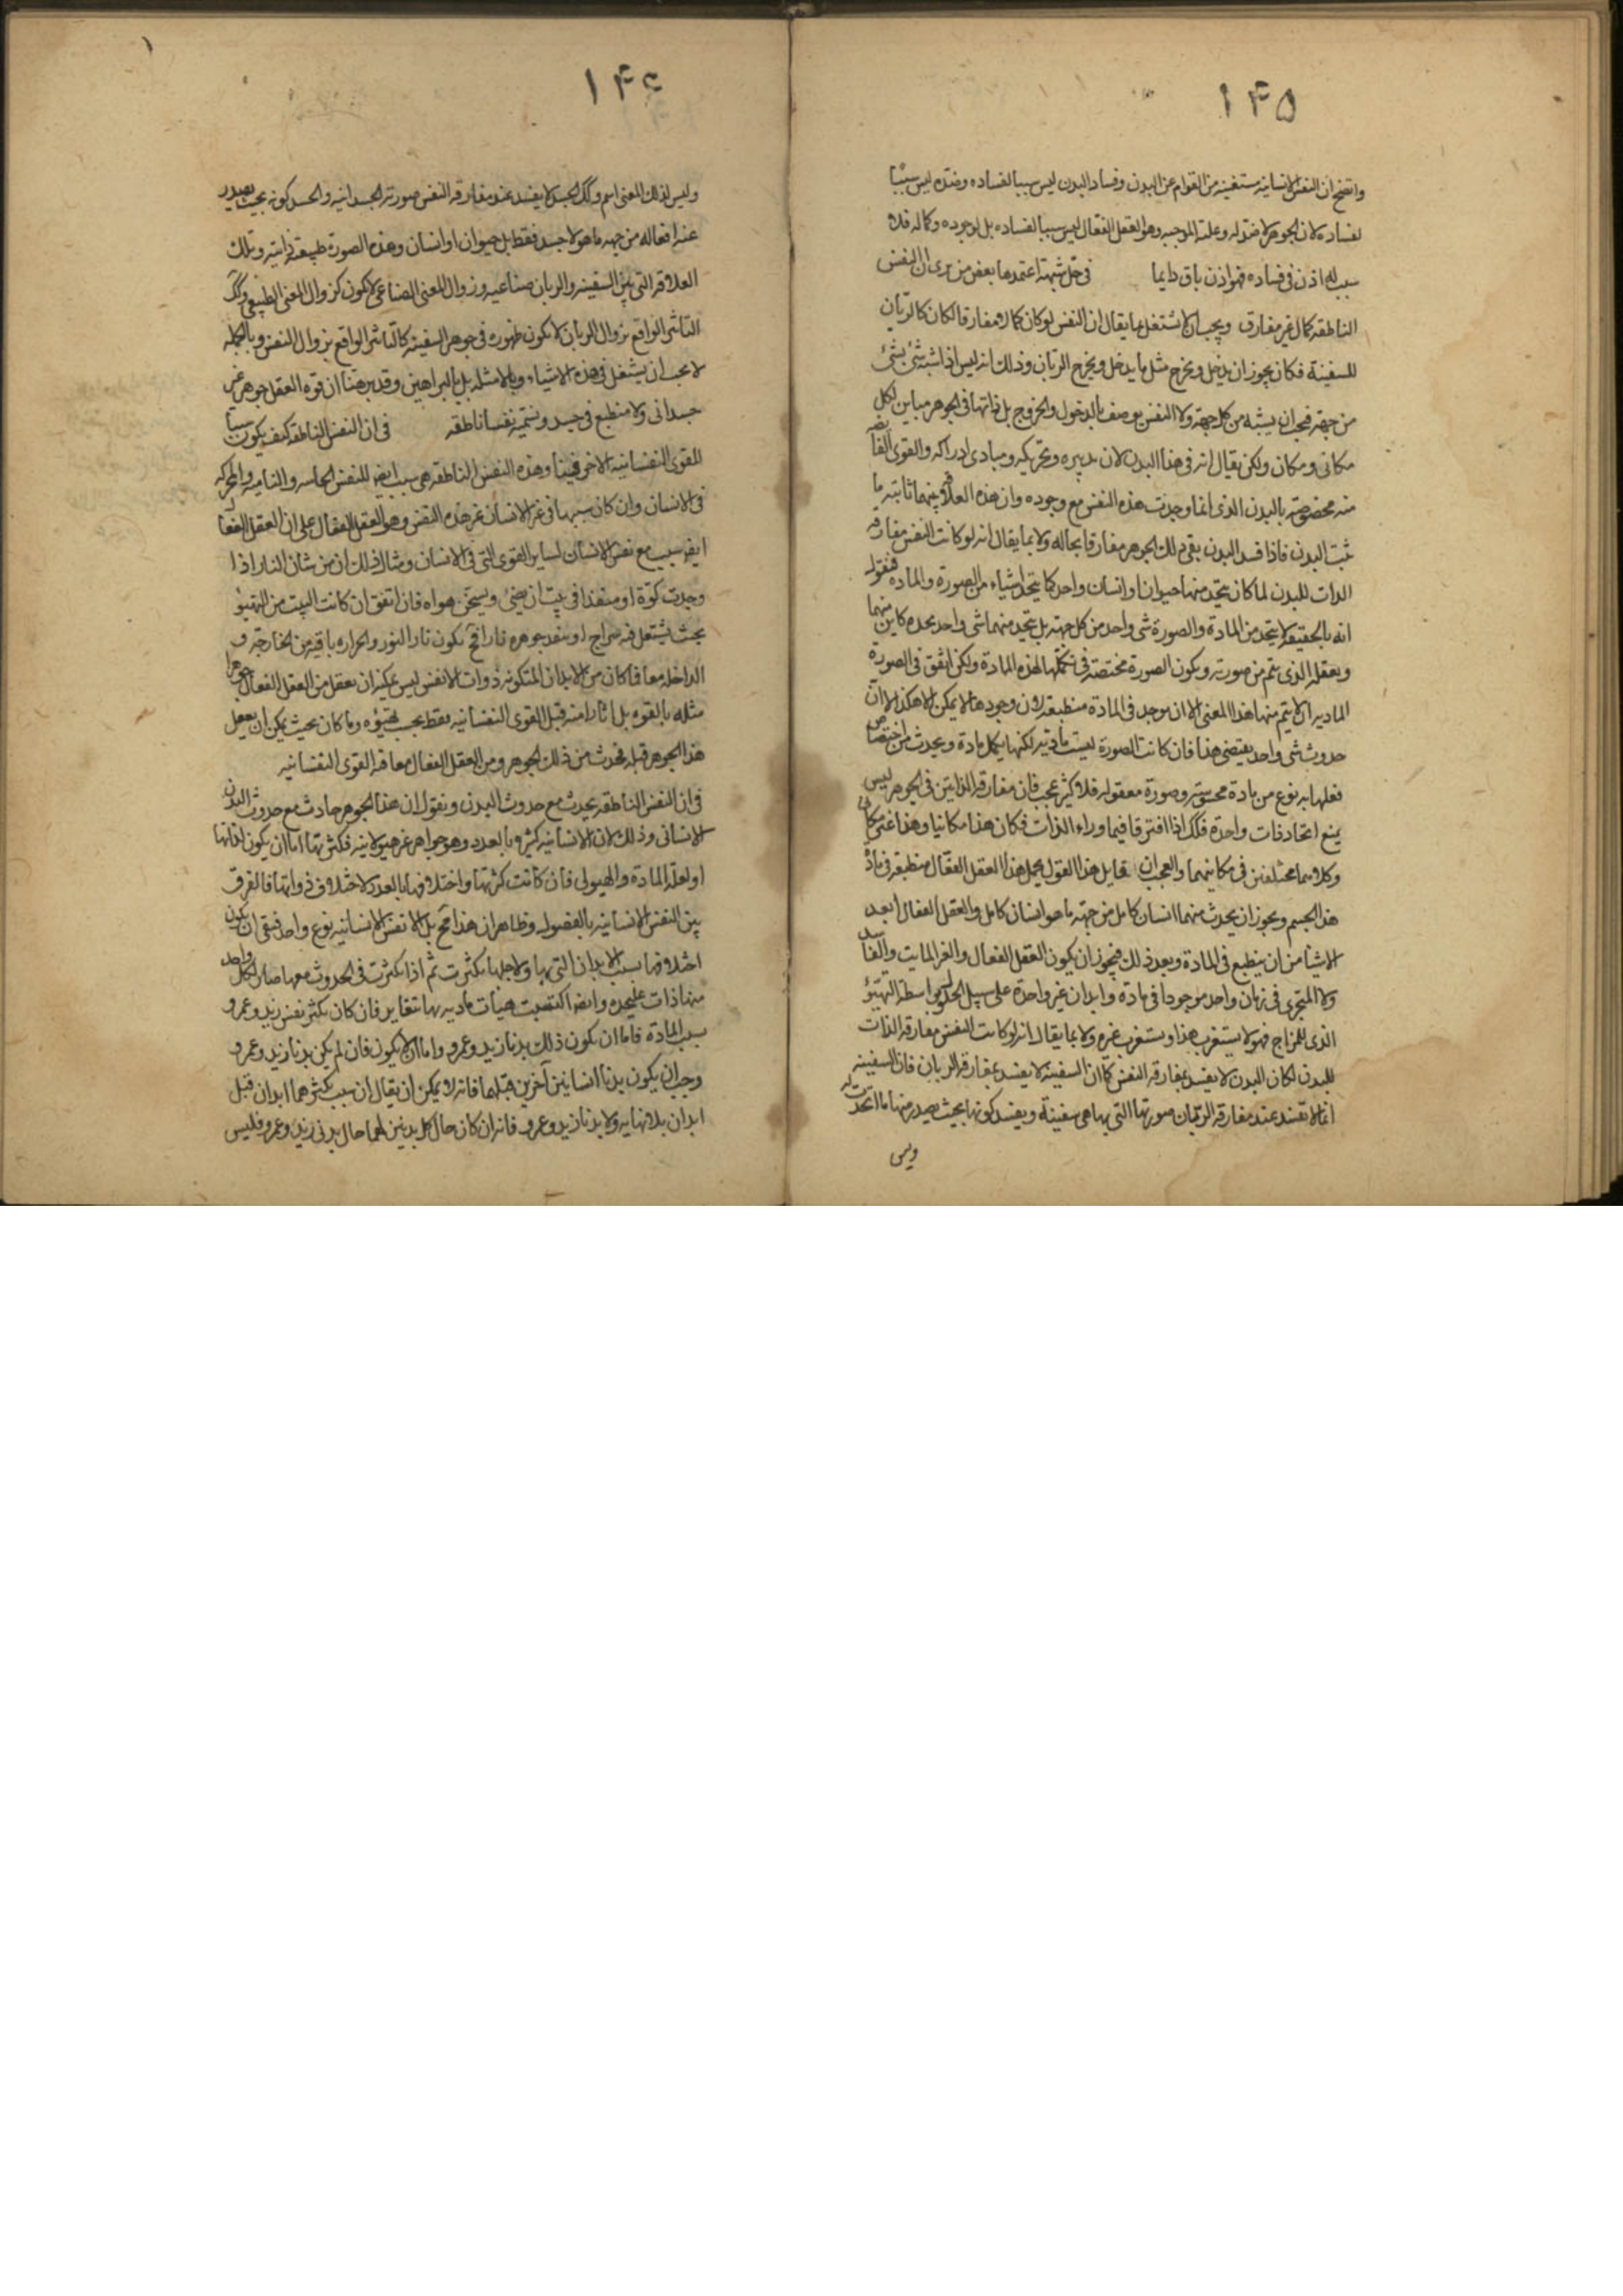 ١٤٥
واتضح ان النفس الانسانية مستغنية من القوام عن البدن وفساد البدن ليس سببا لفساده وضده ليس سببا
لفساده لان الجوهر لا ضد له وعلته الموجبه وهو العقل الفعال ليس سببا لفساده بل لوجوده وكماله فلا
سبب له اذن فى فساده فهو اذن باق دايما فى حل شبهة اعتمدها بعض من يرى ان النفس
الناطقه كمال غير مفارق ويجب ان لا نشتغل بما يقال ان النفس لو كان كمالا مفارقا لكان كالربان
للسفينة فكان يجوز ان يدخل ويخرج مثل ما يدخل ويخرج الربان وذلك انه ليس اذا شبه شئ بشئ
من جهة فيجب ان يشبه من كل جهة ولا النفس يوصف بالدخول والخروج بل ذاتها فى الجوهر مباين لكل
مكانى ومكان ولكن يقال انه فى هذا البدن لان تدبيره وتحريكه ومبادى ادراكه والقوى الفائضه
منه مخصوصة بالبدن الذى انما وجدت هذه النفس مع وجوده وان هذه العلاقه بينهما ثابته ما
ثبت البدن فاذا فسد البدن بقى ذلك الجوهر مفارقا بحاله ولا بما يقال انه لو كانت النفس مفارقه
الذات للبدن لما كان يتحد منهما حيوان او انسان واحد كما يتحد اشياء من الصورة والماده فنقول
انه بالحقيقة لا يتحد من المادة والصورة شى واحد من كل جهة بل يتحد منهما شى واحد بحده كاين منهما
وبعقله الذى يتم من صورته ويكون الصورة مختصة فى تكملها لهذه المادة ولكن اتفق فى الصورة
الماديه ان لا يتم منها هذا المعنى الا ان يوجد فى المادة منطبعه لان وجودها لا يمكن الا هكذا لا ان
حدوث شى واحد يقتضى هذا فان كانت الصورة ليست مادية لكنها يكمل مادة ويحدث من اختصاص
فعلها به نوع من مادة محسوسة وصورة معقوله فلا كثير عجب فان مفارقه الذاتين فى الجوهر ليس
يمنع اتحاد ذات واحدة فكذلك اذا افترقا فيما وراء الذات فكان هذا مكانيا وهذا غير مكانى
وكلاهما مختلفين فى مكانيهما والعجب ان قايل هذا القول يجعل هذا العقل الفعال منطبعه فى مادة
هذا الجسم ويجوز ان يحدث منهما انسان كامل من جهة ما هو انسان كامل والعقل الفعال ابعد
الاشيا من ان ينطبع فى المادة وبعد ذلك فيجوز ان يكون العقل الفعال والغير المايت والفاسد
ولا المتجزى فى زمان واحد موجودا فى مادة وابدان غير واحدة على سبيل الحلول بواسطة التهيؤ
الذى للمزاج فهو لا يستغرب هذا ويستغرب غيره ولا بما يقال انه لو كانت النفس مفارقه الذات
للبدن لكان البدن لا يفسد بمفارقه النفس كما ان السفينة لا يفسد بمفارقة الربان فان السفينه
انما لا تفسد عند مفارقه الربان صورتها التى بها هى سفينة ويفسد كونها بحيث يصدر منها ما اتخذت له
وليس
١٤٦
وليس لذلك المعنى اسم وكذلك الجسد لا يفسد عند مفارقه النفس صورته الجسدانيه والجسد كونه بحيث يصدر
عنه افعاله من جهة ما هو لا جسد فقط بل حيوان او انسان وهذه الصورة طبيعة ذاتية وتلك
العلاقه التى بين السفينه والربان صناعيه وزوال المعنى الصناعى لا يكون كزوال المعنى الطبيعى وكذلك
التاثير الواقع بزوال الربان لا يكون ظهوره فى جوهر السفينه كالتاثير الواقع بزوال النفس وبالجمله
لا يجب ان يشتغل فى هذه الاشياء وبالامثله بل بالبراهين وقد برهنا ان قوه العقل جوهر غير
جسدانى ولا منطبع فى جسد ونسميه نفسا ناطقه فى ان النفس الناطقه كيف يكون سببا
للقوى النفسانيه الاخر فينا وهذه النفس الناطقه هى سبب ايضا للنفس الحاسه والناميه والمحركه
فى الانسان وان كان سببها فى غير الانسان غير هذه النفس وهو العقل الفعال على ان العقل الفعال
ايضا سبب مع نفس الانسان لساير القوى التى فى الانسان ومثال ذلك ان من شان النار اذا
وجدت كوة او منفذا فى بيت ان يضئ ويسخن هواه فان اتفق ان كانت البيت من التهيؤ
بحيث يشتعل فيه سراج او ينفذ جوهره نارا فح تكون نار النور والحراره باقيه من الخارجة و
الداخله معا فما كان من الابدان المتكونه ذوات الانفس ليس يمكن ان يعقل من العقل الفعال جوهرا
مثله بالقوه بل اثارا منه قبل القوى النفسانيه فقط بحسب تهيؤه وما كان بحيث يمكن ان يعقل
هذا الجوهر قبله فحدث من ذلك الجوهر ومن العقل الفعال معا فيه القوى النفسانيه
فى ان النفس الناطقه يحدث مع حدوث البدن ونقول ان هذا الجوهر حادث مع حدوث البدن
الانسانى وذلك لان الانسانيه كثيره بالعدد وهو جواهر غير هيولانيه فكثرتها اما ان يكون لذاتها
او لعلة المادة والهيولى فان كانت كثرتها واختلافها بالعدد لاختلاف ذواتها فالفرق
بين النفس الانسانيه بالفصول وظاهر ان هذا مح بل الانفس الانسانيه نوع واحد فبقى ان يكون
اختلافها بسبب الابدان التى بها ولاجلها تكثرت ثم اذا تكثرت فى الحدوث معها صار لكل واحد
منها ذات عليحده وايضا اكتسبت هيئات ماديه بها تتغاير فان كان تكثر نفس زيد وعمرو
بسبب المادة فاما ان يكون ذلك بدنا زيد وعمرو واما ان لا يكون فان لم يكن بدنا زيد وعمرو
وجب ان يكون بدنا انسانين آخرين قبلهما فانه لا يمكن ان يقال ان سبب تكثرهما ابدان قبل
ابدان بلا نهايه ولا بدنا زيد وعمرو فانه ان كان حال كل بدنين لهما حال بدنى زيد وعمرو فليس